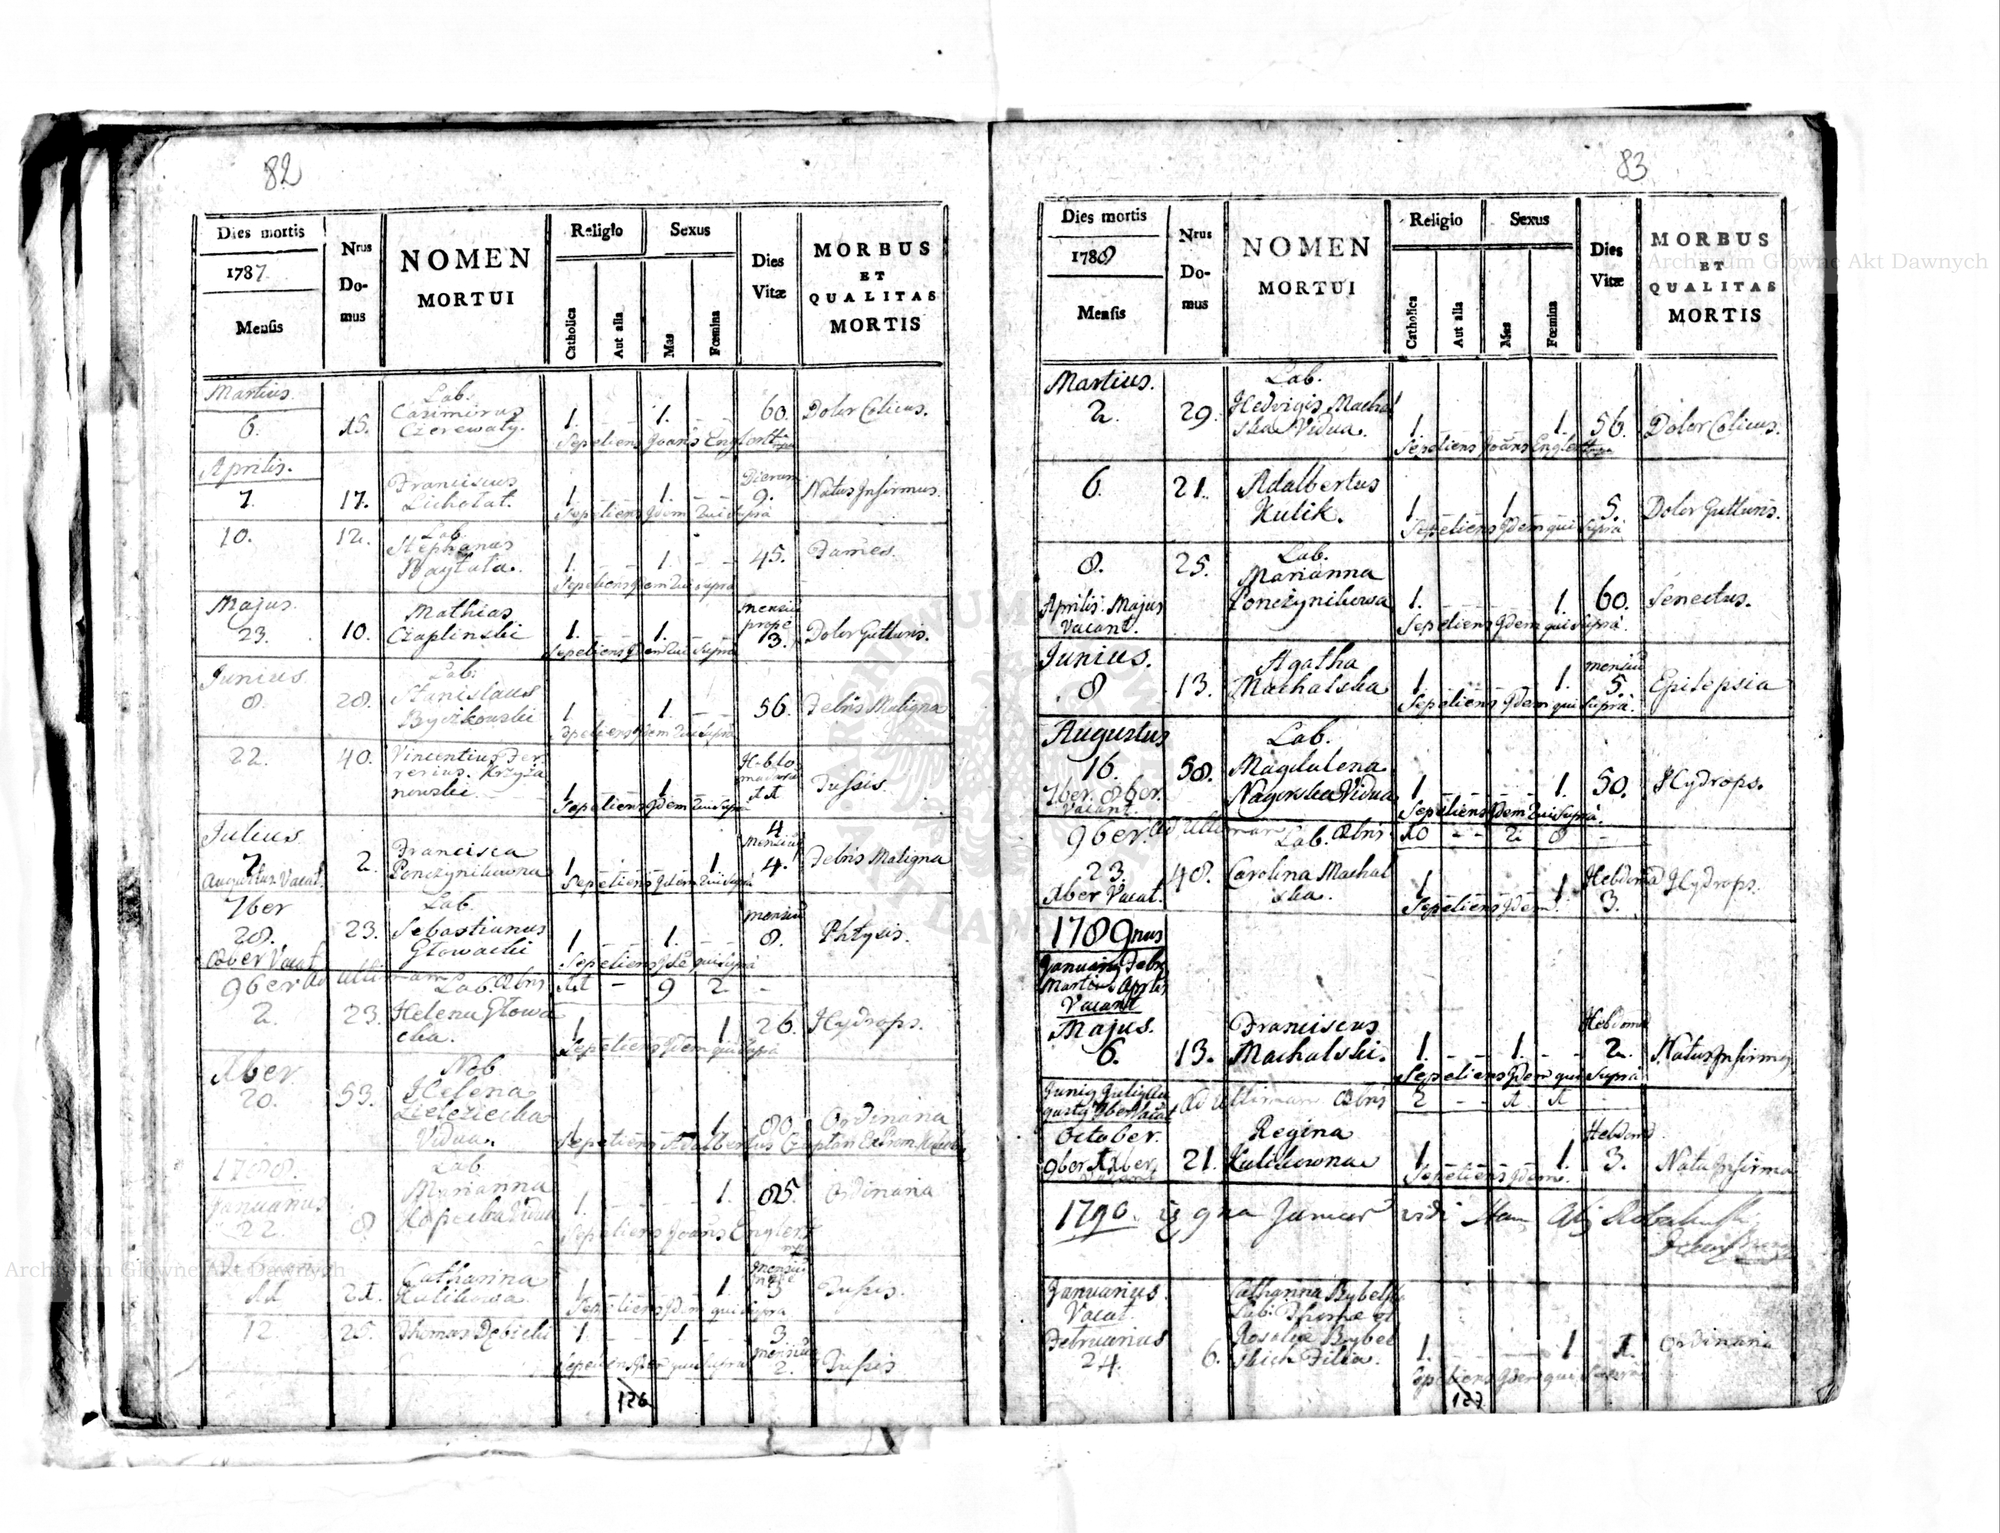 82
Dies mortis
1787.
Mensis
Nrus
Do-
mus
NOMEN
MORTUI
Religio
Catholica
Aut alia
Sexus
Mas
Fœmina
Dies
Vitæ
MORBUS
ET
QUALITAS
MORTIS
Martius.
Lab.
6. 15. Casimirus 1. 1. 60. Dolor Colicus.
Czerewaty.
Sepeliens Joañs Englertt
Aprilis.
Franciscus Dierum
7. 17. Lichotat. 1. 1. 9. Natus Infirmus.
Sepeliens Idem Qui Supra
10. 12. Lab.
Stephanus 1. 1. 45. Fames.
Sepeliens Idem Qui Supra
Majus. Mathias mensiu prope
23. 10. Czaplinski 1. 1. 3. Dolor Gutturis.
Sepeliens Idem Qui Supra
Junius. Lab.
8. 28. Stanislaus
Byczkowski 1. 1. 56. Febris Maligna
Sepeliens Idem Qui Supra
22. 40. Vincentius Fer-
rerius. Krzyża
nowski. 1 1 11 Tussis.
Sepeliens Idem Qui Supra
Julius 4
7. 2. Francisca mensiu
Ponczynikowna 1 1. 4. Febris Maligna
Augustus Vacat. Sepeliens Idem Qui Supra
7ber Lab.
28. 23. Sebastianus mensiu
Głowacki 1. 1. 8. Phtysis.
8ber Vacat. Sepeliens Idē qui Supra
9ber Ad ultimam 8bris 11 - 9 2 -
Lab.
2. 23. Helena Głowa
cka. 1 1 26. Hydrops.
Sepeliens Idem qui Supra
Xber Nob
20. 53. Helena
Vidua. 1 1 80. Ordinaria
Sepeliens Adalbertus Czaplan
1788. Lab.
Januarius Marianna
22. 8 Vidua 1. 1. 85. Ordinaria
Sepeliens Joañs Englert
Catharina mensiu
11 21. Kulikowa. 1 1 3 Tussis.
Sepeliens Idem qui Supra
12. 25. Thomas Dębicki 1 1 3
mensiu
Sepeliens Idem qui Supra 2. Tussis.
126
83
Dies mortis
1788
Mensis
Nrus
Do-
mus
NOMEN
MORTUI
Religio
Catholica
Aut alia
Sexus
Mas
Fœmina
Dies
Vitæ
MORBUS
ET
QUALITAS
MORTIS
Martius. Lab.
2. 29. Hedvigis Machal
ska Vidua. 1. 1. 56. Dolor Colicus.
Sepeliens Joañs Englertt
6. 21. Adalbertus
Kulik. 1. 1 5. Dolor Gutturis.
Sepeliens Idem qui Supra
8. 25. Lab.
Marianna
Aprilis. Majus Ponczynikowa 1. 1. 60. Senectus.
Vacant. Sepeliens Idem qui Supra.
Junius. Agatha mensiu
8 13. Machalska 1. 1. 5. Epilepsia
Sepeliens Idem qui Supra.
Augustus Lab.
16. 58. Magdalena
7ber. 8ber. Vidua 1 1. 50. Hydrops.
Vacant. Sepeliens Idem Qui Supra.
9ber. Ad ultimam 8bris 10 - - 2 8 -
Lab.
23. 48. Carolina Machal Hebdomad Hydrops.
Xber Vacat. ska. 1 1 3.
Sepeliens Idem.
1789nus
Januarius Febr
Martius Aprilis
Vacant
Majus. Franciscus Hebdoma
6. 13. Machalski. 1. - - 1. - - 2. Natus Infirmus
Sepeliens Idem qui Supra
Ad ultimam 8bris 2 - - 1 1 -
October. Regina Hebdomd.
9ber Xber 21. Kulikowna 1. 1. 3. Nata Infirma
Vacant Sepeliens Idem.
1790.
Januarius. Catharina
Vacat. Lab. Thomæ et
Februarius Rosaliæ
24. 6. Filia. 1. 1 1. Ordinaria
Sepeliens Idem qui Supra
127
ARCHIWUM GŁÓWNE AKT DAWNYCH
Archiwum Główne Akt Dawnych
Archiwum Główne Akt Dawnych